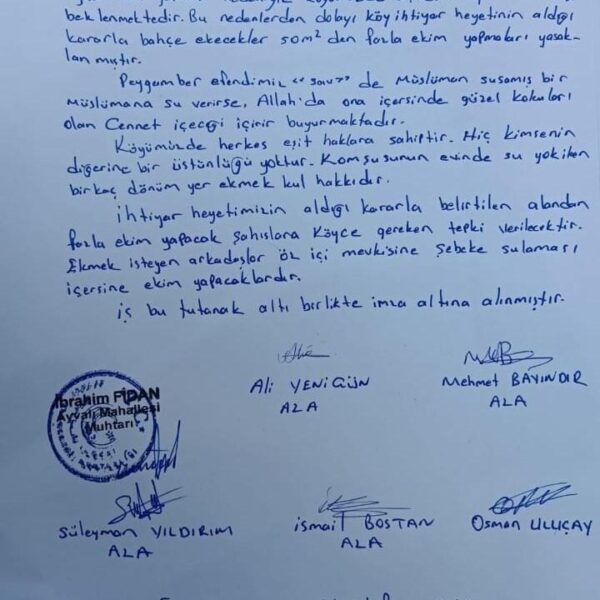 beklenmektedir. Bu nedenlerden dolayı köy ihtiyar heyetinin aldığı
kararla bahçe ekecekler 50m² den fazla ekim yapmaları yasak-
lanmıştır.
Peygamber efendimiz "sav" de Müslüman susamış bir
müslümana su verirse, Allah'da ona içersinde güzel kokuları
olan Cennet içeceği içirir buyurmaktadır.
Köyümüzde herkes eşit haklara sahiptir. Hiç kimsenin
diğerine bir üstünlüğü yoktur. Komşusunun evinde su yokiken
birkaç dönüm yer ekmek kul hakkıdır.
ihtiyar heyetimizin aldığı kararla belirtilen alandan
fazla ekim yapacak şahıslara köyce gereken tepki verilecektir.
Ekmek isteyen arkadaşlar öz içi mevkisine şebeke sulaması
içersine ekim yapacaklardır.
iş bu tutanak altı birlikte imza altına alınmıştır.
İbrahim FİDAN
Ayvalı Mahallesi
Muhtarı
Ali YENİGÜN
AZA
Mehmet BAYINDIR
AZA
Süleyman YILDIRIM
AZA
ismail BOSTAN
AZA
Osman ULUÇAY